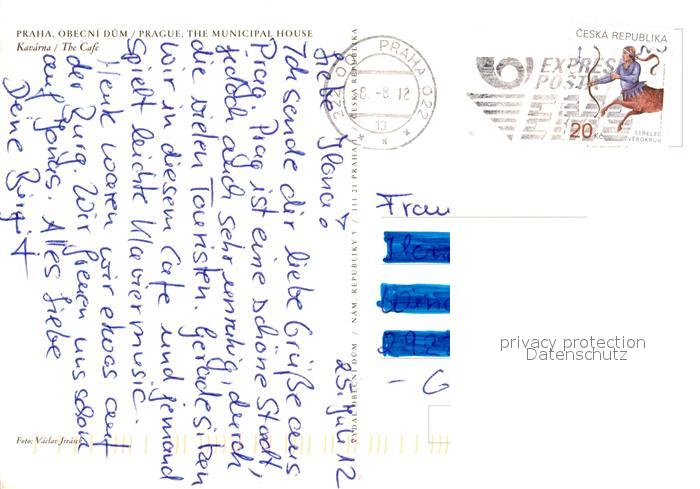 PRAHA, OBECNÍ DŮM / PRAGUE, THE MUNICIPAL HOUSE
Kavárna / The Café
25. Juli 12
Liebe Ilona!
Ich sende dir liebe Grüße aus
Prag. Prag ist eine schöne Stadt,
jedoch auch sehr unruhig, durch
die vielen Touristen. Gerade sitzen
wir in diesem Cafe und jemand
spielt leichte Klaviermusic.
Heute waren wir etwas auf
der Burg. Wir freuen uns schon
auf Jonas. Alles Liebe
Deine Birgit
Foto: Václav Jirásek
VYDAL OBECNÍ DŮM / NÁM. REPUBLIKY 5 / 111 21 PRAHA / ČESKÁ REPUBLIKA
PRAHA 022
-8.12
13
EXPRES
POŠTA
ČESKÁ REPUBLIKA
20 Kč
STŘELEC
ZVĚROKRUH
Frau
privacy protection
Datenschutz